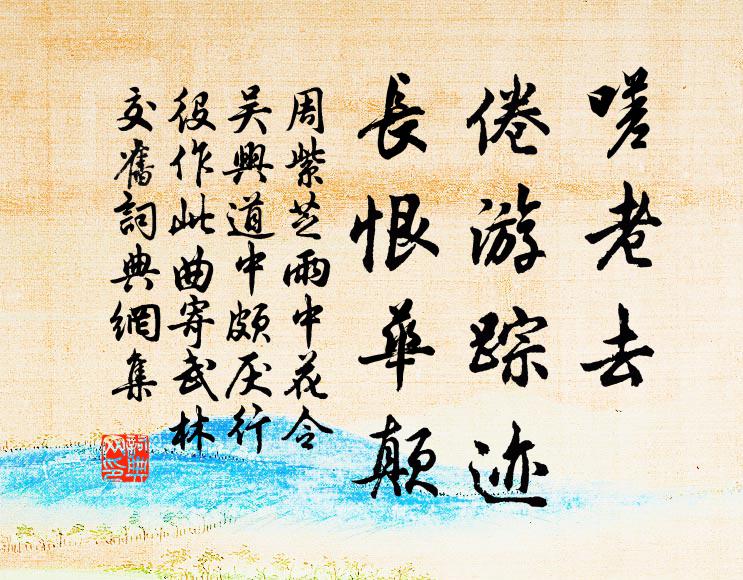 嗟老去
倦游踪迹
長恨華顛
周紫芝雨中花令
吴興道中頗厌行
役作此曲寄武林
交舊詞典網集